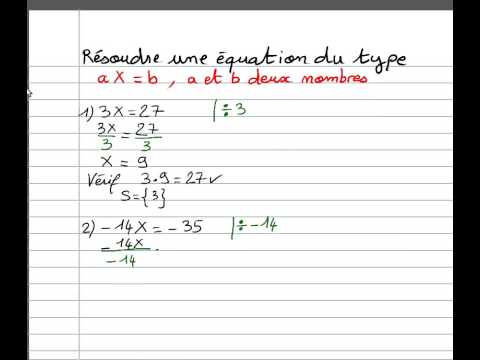 Résoudre une équation du type
aX = b , a et b deux nombres
1) 3X = 27 |÷ 3
3X/3 = 27/3
X = 9
Vérif 3 · 9 = 27 ✓
S = {3}
2) -14X = -35 |÷ -14
-14X/-14 .